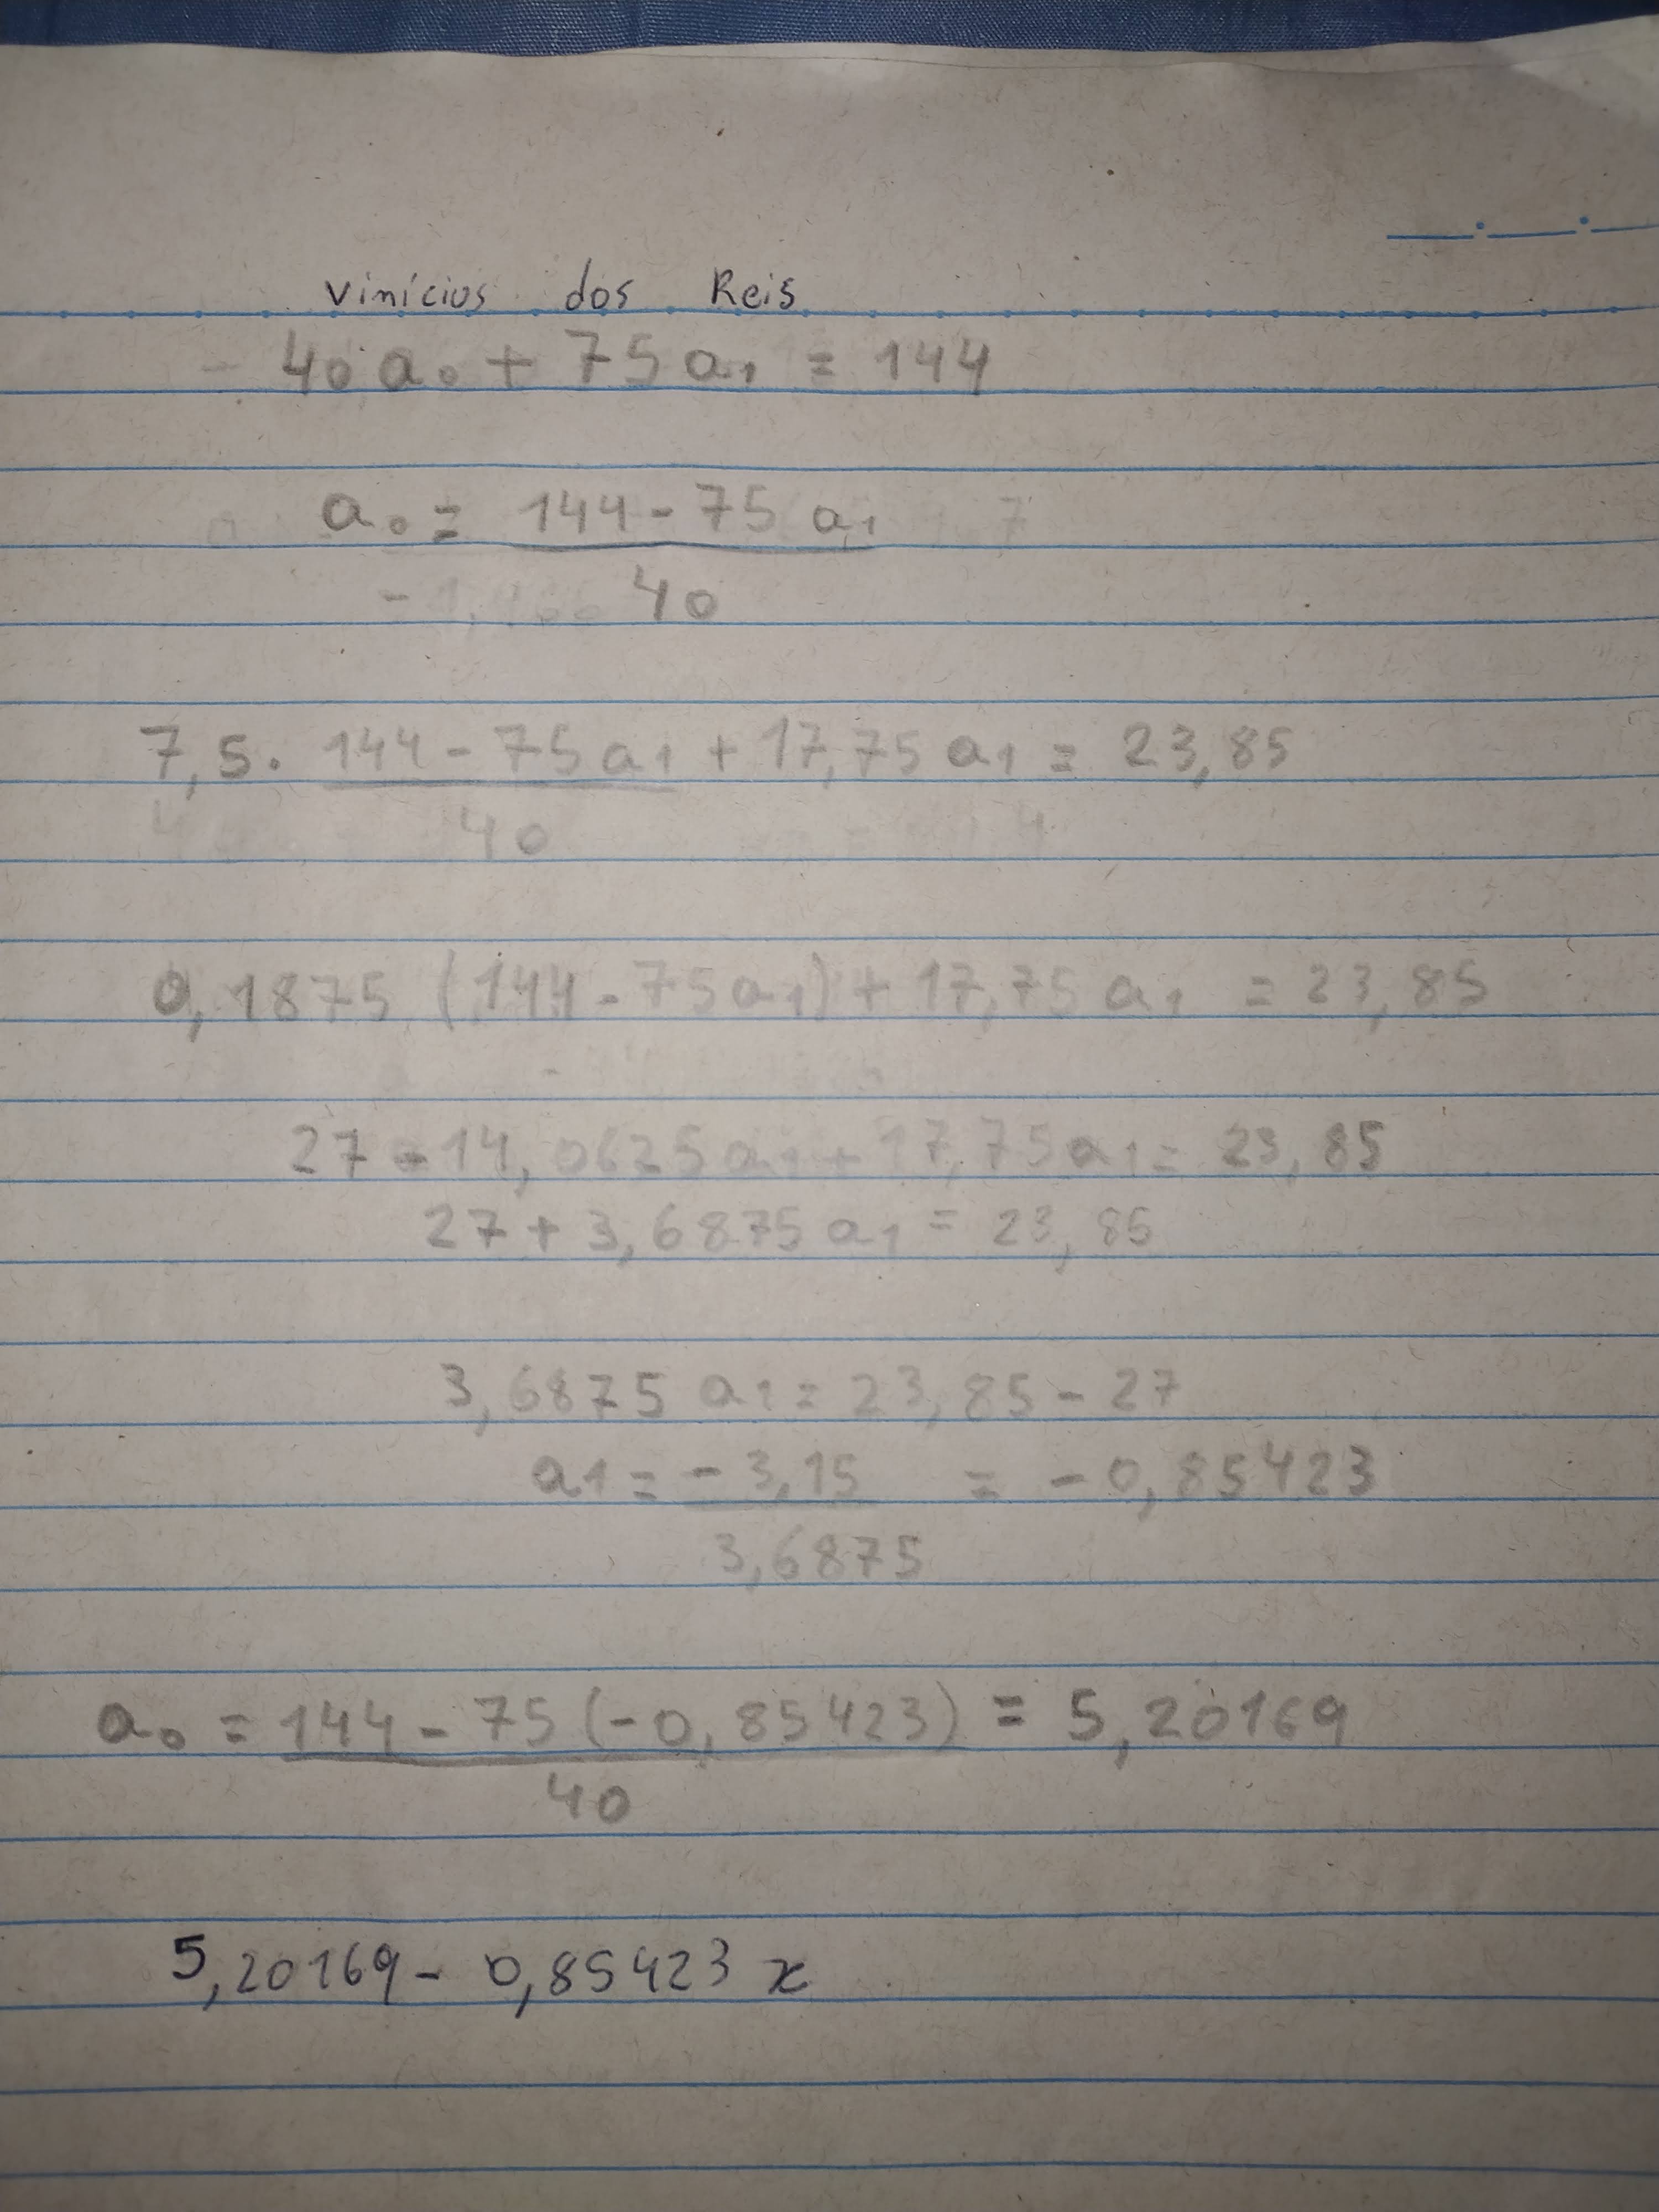 Vinícios dos Reis
40 a₀ + 75 a₁ = 144
a₀ = 144 - 75 a₁
40
7,5 . 144 - 75 a₁ + 17,75 a₁ = 23,85
40
0,1875 (144 - 75 a₁) + 17,75 a₁ = 23,85
27 - 14,0625 a₁ + 17,75 a₁ = 23,85
27 + 3,6875 a₁ = 23,85
3,6875 a₁ = 23,85 - 27
a1 = - 3,15 = - 0,85423
3,6875
a₀ = 144 - 75 (-0,85423) = 5,20169
40
5,20169 - 0,85423 x